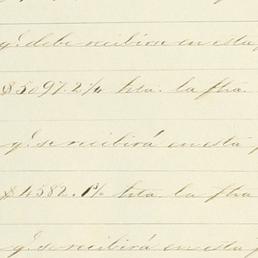 qe. debe recibir en esta
$5097.2½ hta. la fha.
qe. se recibirá en esta
$4582. hta. la fha
qe. se recibirá en esta